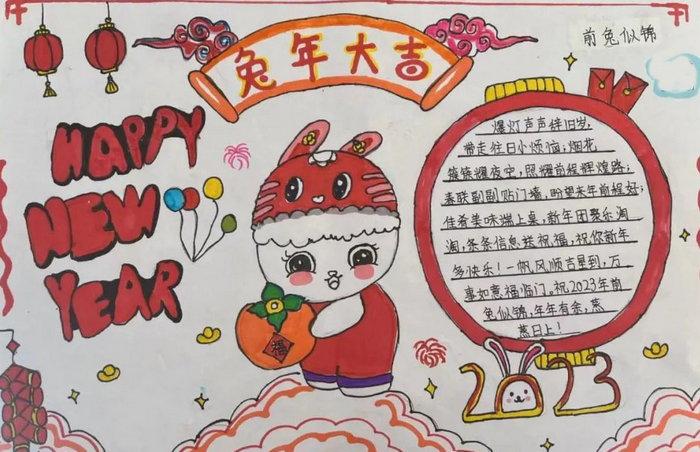 兔年大吉
前兔似锦
HAPPY
NEW
YEAR
爆灯声声伴旧岁,
带走往日小烦恼;烟花
簇簇耀夜空,照耀前程辉煌路;
春联副副贴门墙,盼望来年前程好;
佳肴美味端上桌,新年团聚乐淘
淘,条条信息送祝福,祝你新年
多快乐!一帆风顺吉星到,万
事如意福临门。祝2023年前
兔似锦,年年有余,蒸
蒸日上!
福
2023